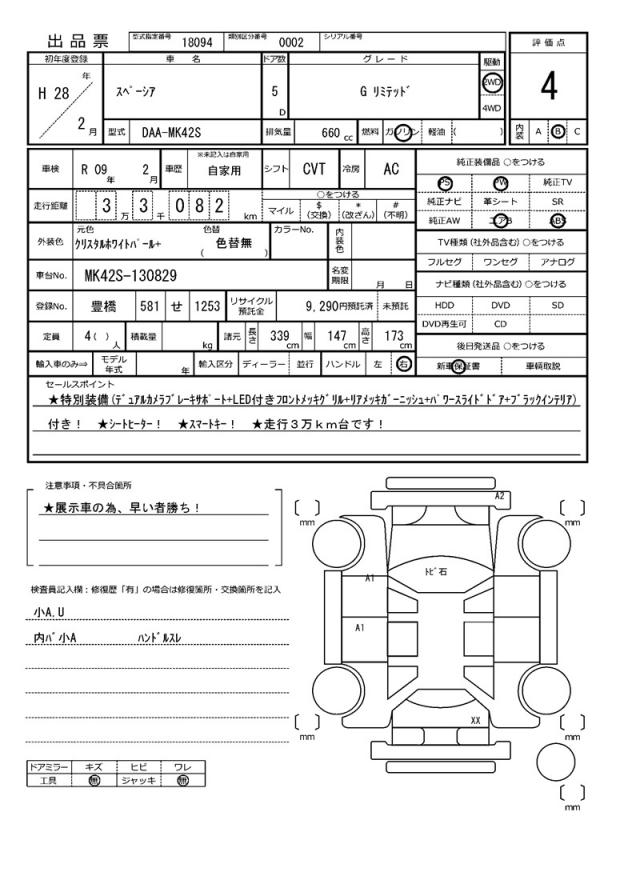 出品票 型式指定番号 18094 類別区分番号 0002 シリアル番号
評価点
初年度登録 車名 ドア数 グレード 駆動
H 28 年 2 月 スペーシア 5 D G リミテッド 2WD 4WD
4
型式 DAA-MK42S 排気量 660 cc 燃料 ガソリン 軽油 ( ) 内装 A B C
車検 R 09 年 2 月 車歴 ※未記入は自家用 自家用 シフト CVT 冷房 AC
純正装備品 ○をつける
PS PW 純正TV
純正ナビ 革シート SR
純正AW エアB ABS
走行距離 3 万 3 千 0 8 2 km
○をつける
マイル $ (交換) * (改ざん) # (不明)
外装色 元色 クリスタルホワイトパール+ 色替 ( 色替無 ) カラーNo. 内装色
TV種類 (社外品含む) ○をつける
フルセグ ワンセグ アナログ
車台No. MK42S-130829 名変期限 月 日
ナビ種類 (社外品含む) ○をつける
HDD DVD SD
DVD再生可 CD
登録No. 豊橋 581 せ 1253 リサイクル預託金 9,290円預託済 未預託
定員 4( ) 人 積載量 kg 諸元 長さ 339 cm 幅 147 cm 高さ 173 cm
後日発送品 ○をつける
新車保証書 車輌取説
輸入車のみ⇒ モデル年式 年 輸入区分 ディーラー 並行 ハンドル 左 右
セールスポイント
★特別装備(デュアルカメラブレーキサポート+LED付きフロントメッキグリル+リアメッキガーニッシュ+パワースライドドア+ブラックインテリア)
付き! ★シートヒーター! ★スマートキー! ★走行3万km台です!
注意事項・不具合箇所
★展示車の為、早い者勝ち!
検査員記入欄:修復歴「有」の場合は修復箇所・交換箇所を記入
小A.U
内バ小A ハンドルスレ
ドアミラー キズ ヒビ ワレ
工具 無 ジャッキ 無
A2
[ ] mm
[ ] mm
トビ石
A1
A1
XX
[ ] mm
[ ] mm
[ ] mm